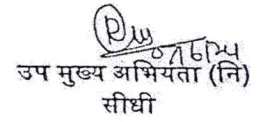 उप मुख्य अभियंता (नि)
सीधी